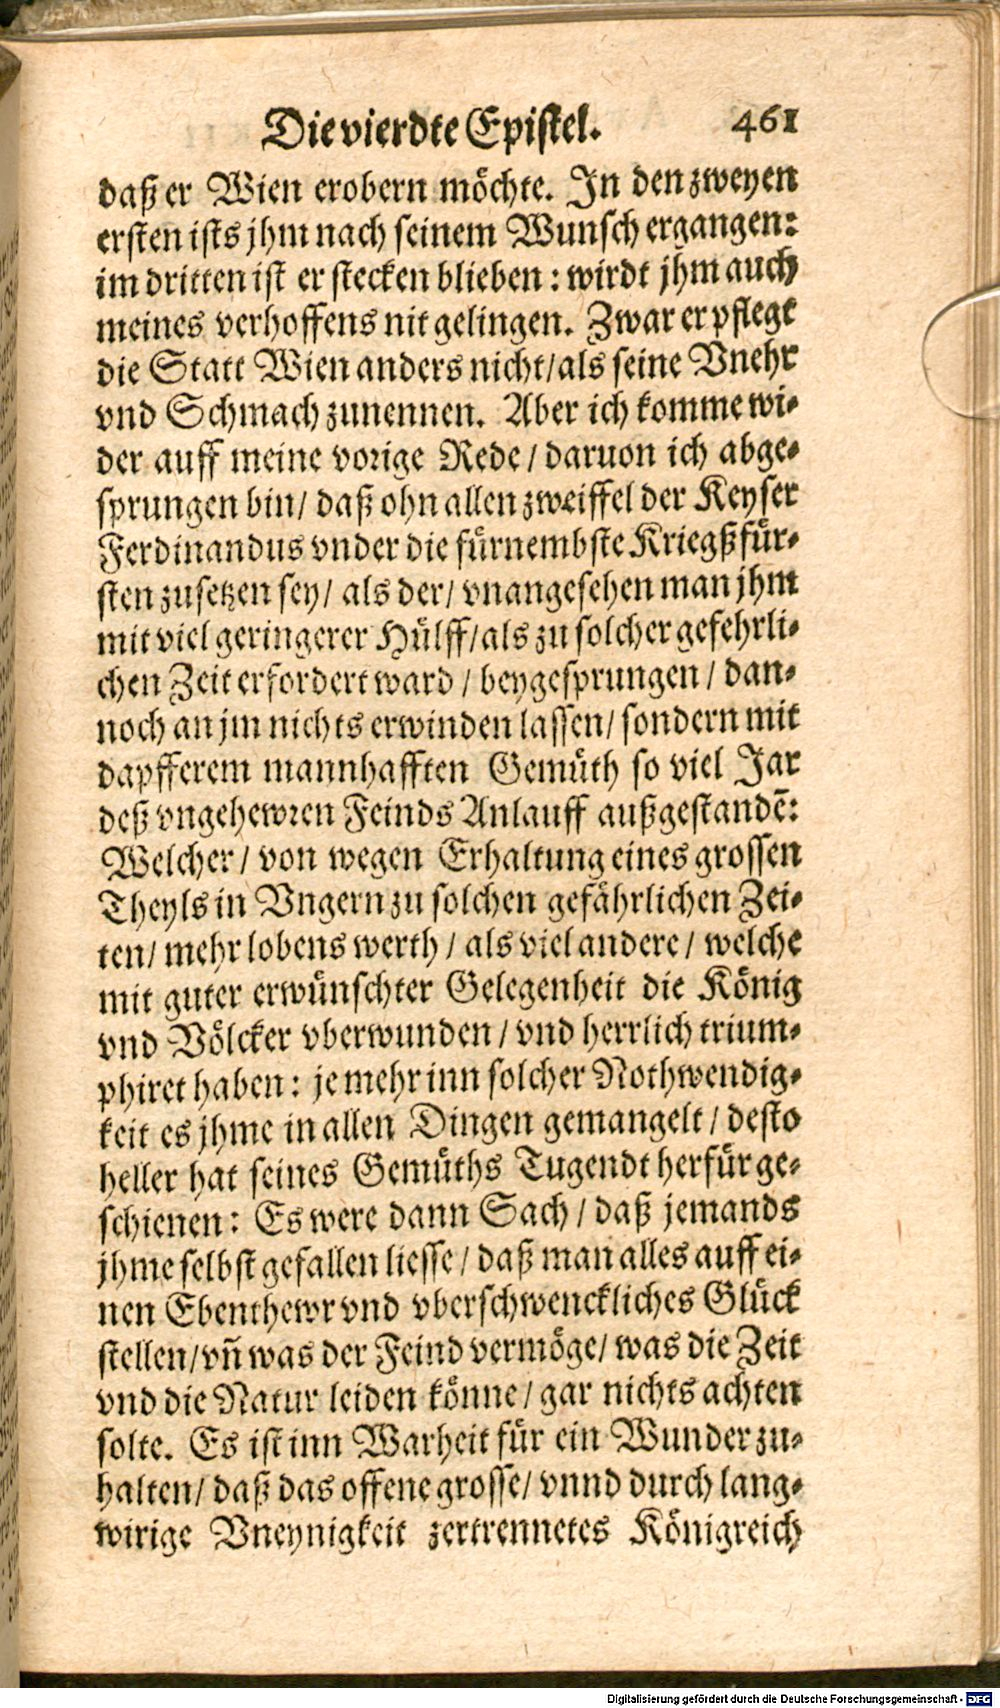 Die vierdte Epistel. 461
daß er Wien erobern möchte. In den zweyen
ersten ists jhm nach seinem Wunsch ergangen:
im dritten ist er stecken blieben: wirdt jhm auch
meines verhoffens nit gelingen. Zwar er pflegt
die Statt Wien anders nicht/als seine Vnehr
vnd Schmach zunennen. Aber ich komme wi-
der auff meine vorige Rede/ daruon ich abge-
sprungen bin/ daß ohn allen zweiffel der Keyser
Ferdinandus vnder die fürnembste Kriegßfür-
sten zusetzen sey/ als der/ vnangesehen man jhm
mit viel geringerer Hülff/als zu solcher gefehrli-
chen Zeit erfordert ward/ beygesprungen/ dan-
noch an jm nichts erwinden lassen/ sondern mit
dapfferem mannhafften Gemüth so viel Jar
deß vngehewren Feinds Anlauff außgestandẽ:
Welcher/ von wegen Erhaltung eines grossen
Theyls in Vngern zu solchen gefährlichen Zei-
ten/ mehr lobens werth/ als viel andere/ welche
mit guter erwünschter Gelegenheit die König
vnd Völcker vberwunden/ vnd herrlich trium-
phiret haben: je mehr inn solcher Nothwendig-
keit es jhme in allen Dingen gemangelt/ desto
heller hat seines Gemüths Tugendt herfür ge-
schienen: Es were dann Sach/ daß jemands
jhme selbst gefallen liesse/ daß man alles auff ei-
nen Ebenthewr vnd vberschwenckliches Glück
stellen/vñ was der Feind vermöge/ was die Zeit
vnd die Natur leiden könne/ gar nichts achten
solte. Es ist inn Warheit für ein Wunder zu-
halten/ daß das offene grosse/ vnnd durch lang-
wirige Vneynigkeit zertrennetes Königreich
Digitalisierung gefördert durch die Deutsche Forschungsgemeinschaft - DFG